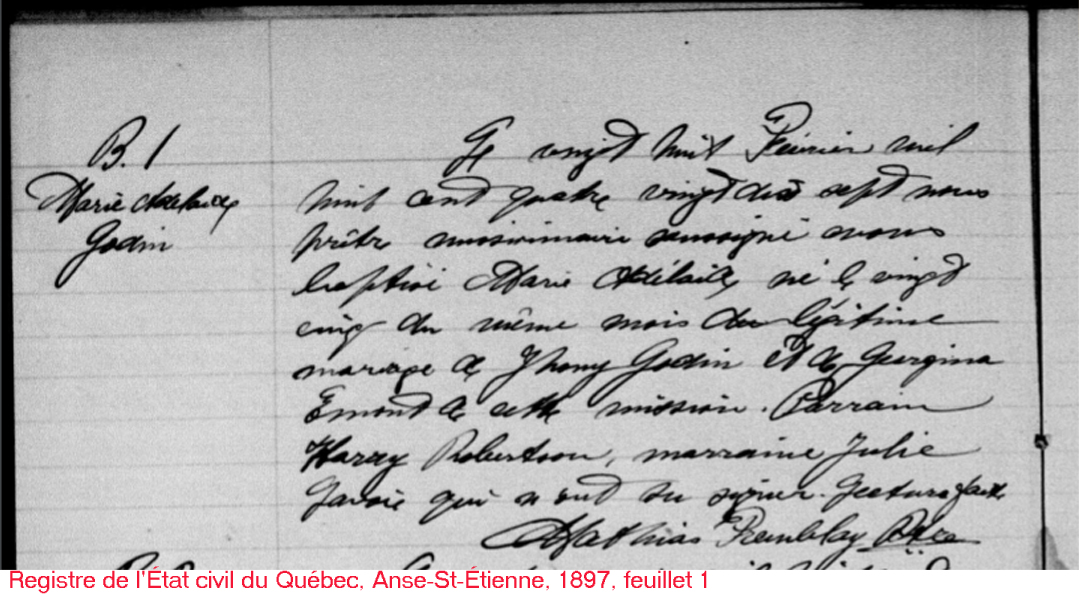 B. 1
Marie Adelaide
Godin
Le vingt huit Février mil
huit cent quatre vingt dix sept nous
prêtre missionnaire soussigné avons
baptisé Marie Adélaide, né le vingt
cinq du même mois du légitime
mariage de Jhony Godin et de Georgina
Emond de cette mission. Parrain
Harry Robertson, marraine Julie
Savoie qui n ont su signer. Lecture faite
Mathias Tremblay Ptre
Registre de l'État civil du Québec, Anse-St-Étienne, 1897, feuillet 1